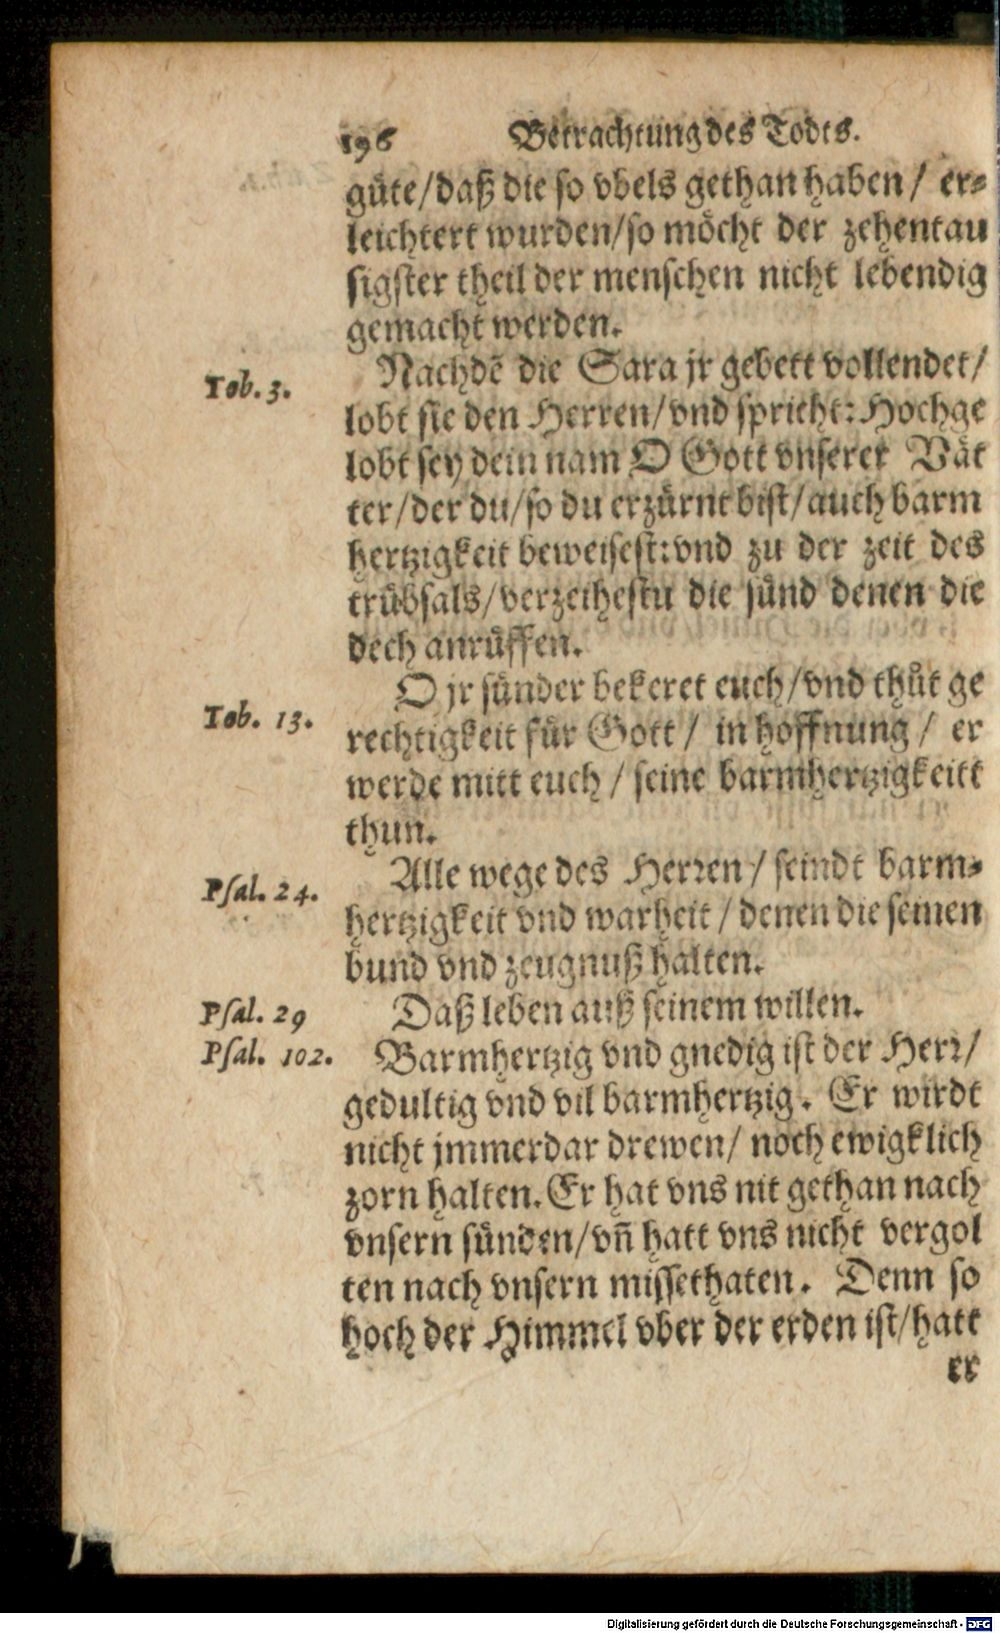 196 Betrachtung des Todts.
güte/daß die so vbels gethan haben / er⸗
leichtert wurden/so möcht der zehentau
sigster theil der menschen nicht lebendig
gemacht werden.
Tob. 3.
Nachdẽ die Sara jr gebett vollendet/
lobt sie den Herren/vnd spricht: Hochge
lobt sey dein nam O Gott vnserer Vät
ter/der du/so du erzürnt bist/auch barm
hertzigkeit beweisest: vnd zu der zeit des
trübsals/verzeihestu die sünd denen die
dech anrüffen.
Tob. 13.
O jr sünder bekeret euch/vnd thůt ge
rechtigkeit für Gott / in hoffnung / er
werde mitt euch / seine barmhertzigkeitt
thun.
Psal. 24.
Alle wege des Herren / seindt barm⸗
hertzigkeit vnd warheit / denen die seinen
bund vnd zeugnuß halten.
Psal. 29
Daß leben auß seinem willen.
Psal. 102.
Barmhertzig vnd gnedig ist der Herr/
gedultig vnd vil barmhertzig. Er wirdt
nicht jmmerdar drewen/ noch ewigklich
zorn halten. Er hat vns nit gethan nach
vnsern sünden/vñ hatt vns nicht vergol
ten nach vnsern missethaten. Denn so
hoch der Himmel vber der erden ist/hatt
er
Digitalisierung gefördert durch die Deutsche Forschungsgemeinschaft - DFG